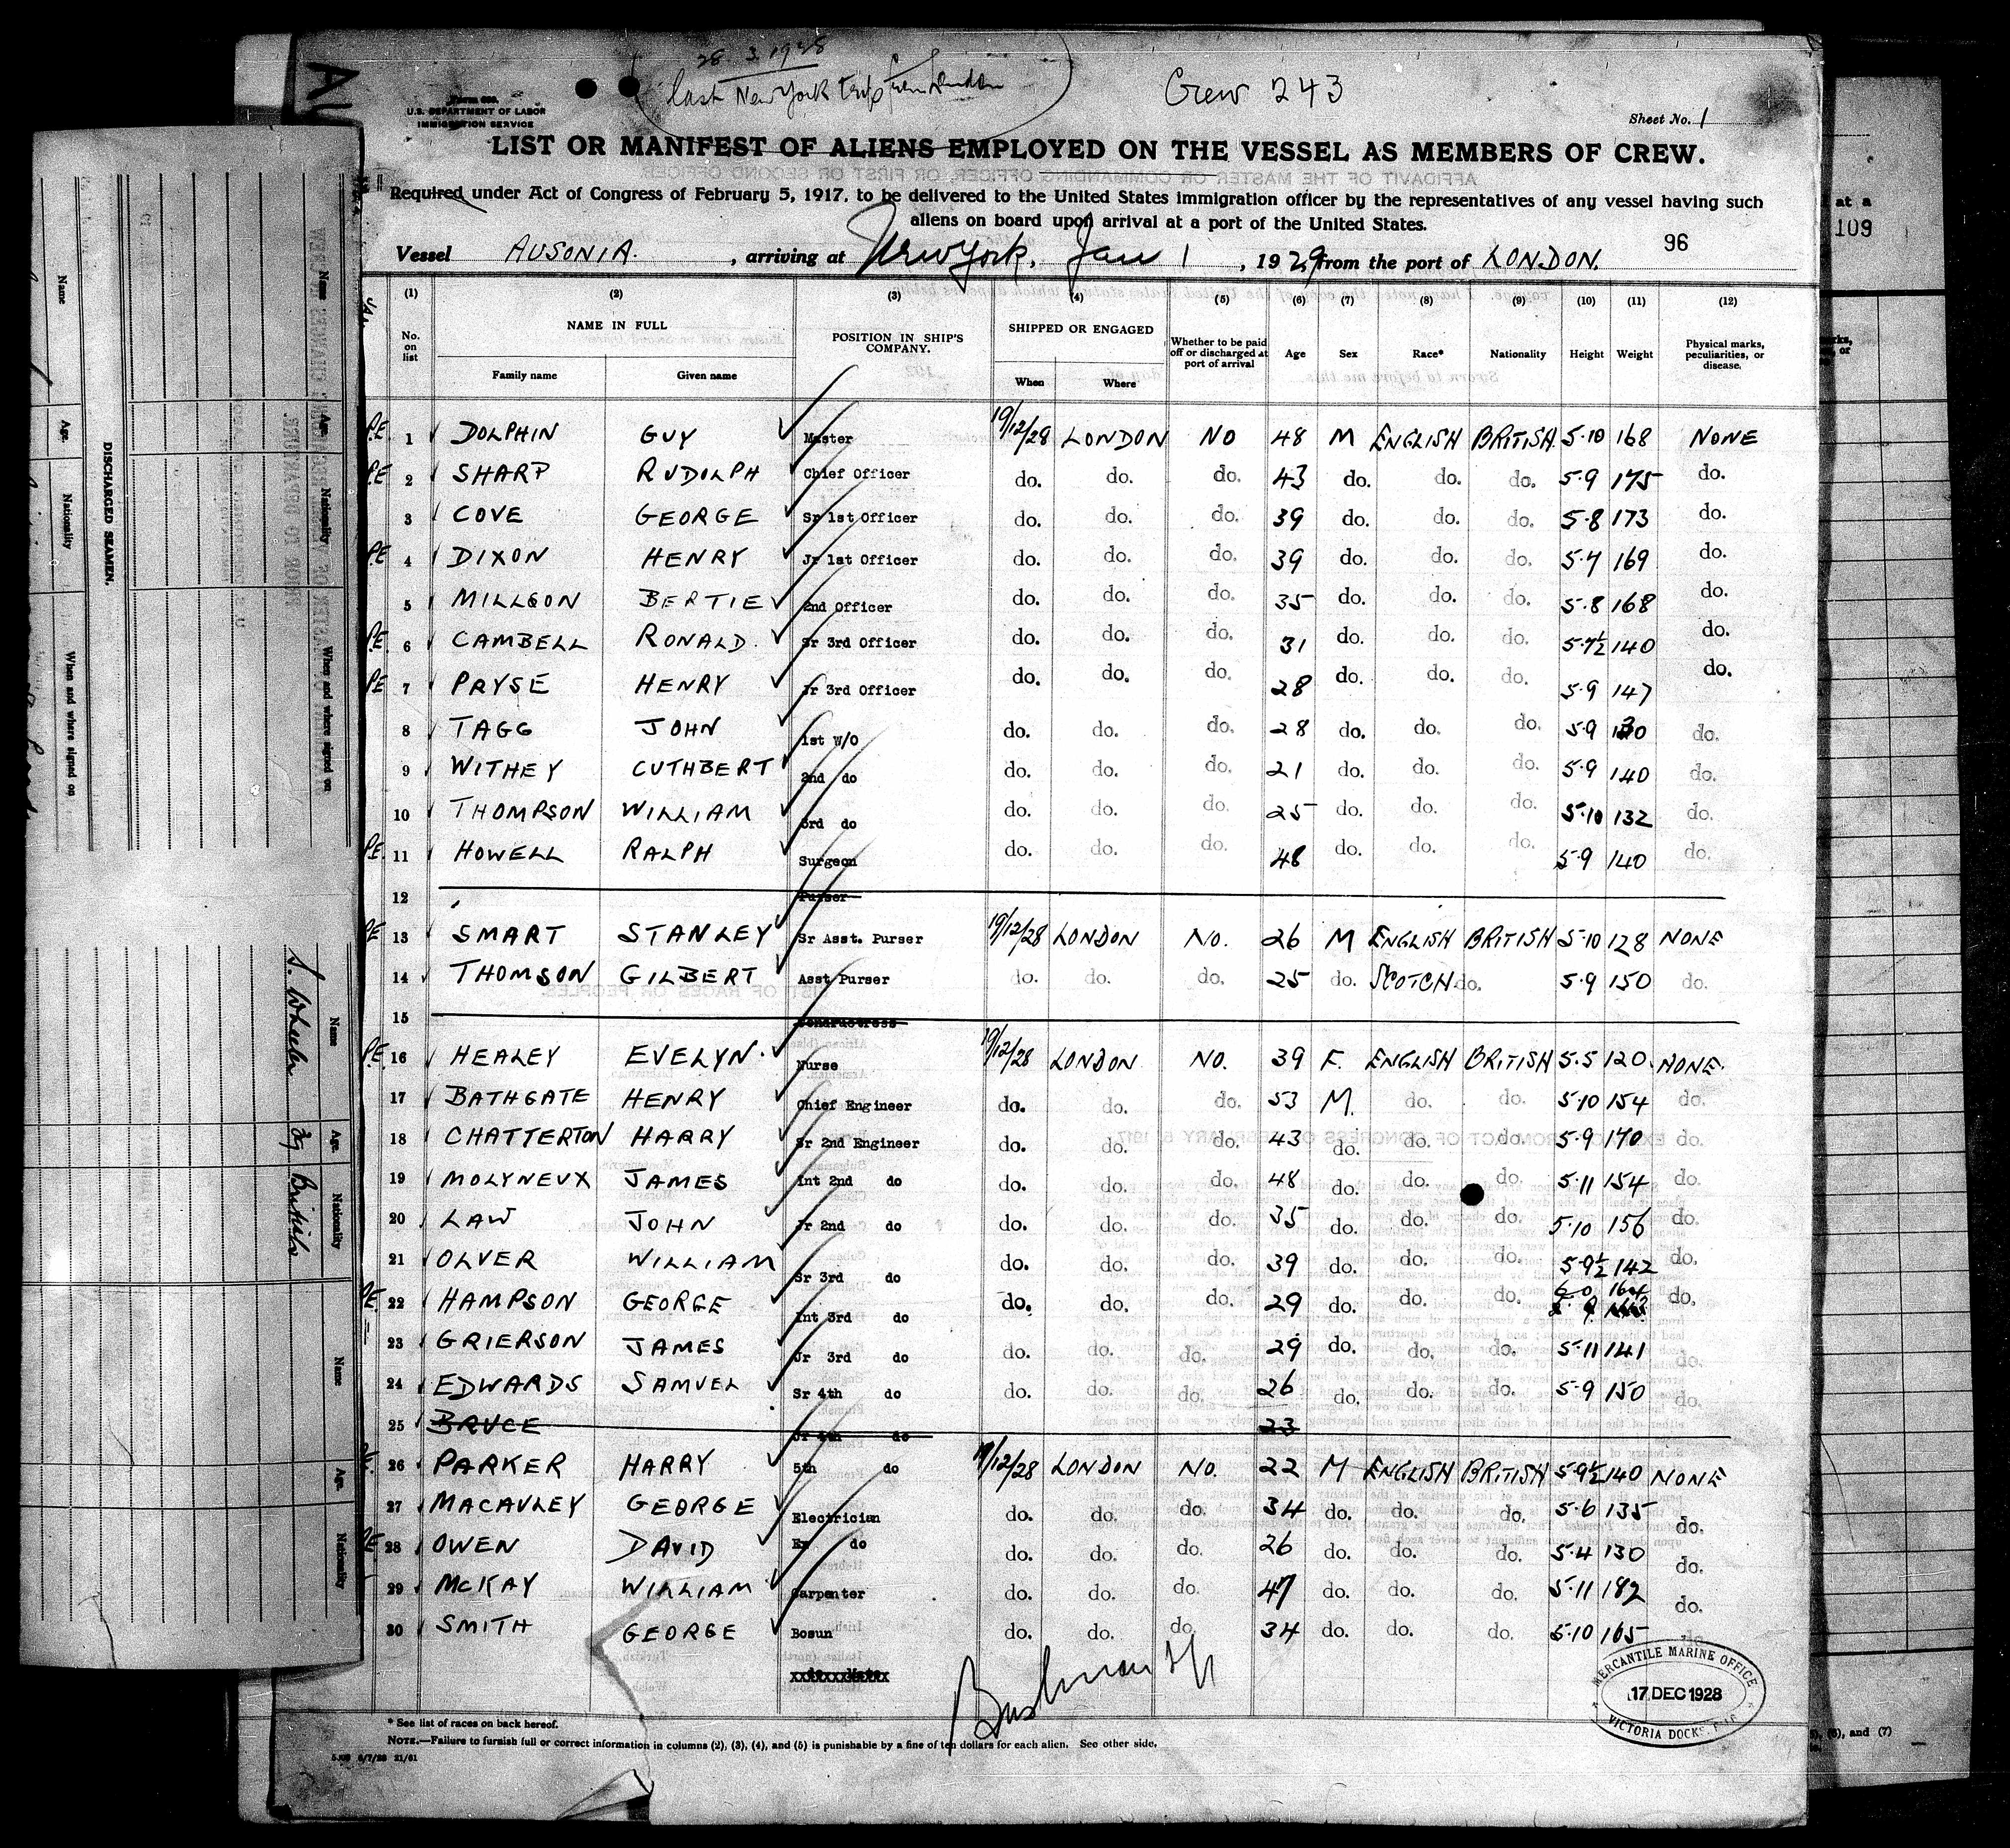 28.3.1928
last New York trip from London
Crew 243
U.S. DEPARTMENT OF LABOR
IMMIGRATION SERVICE
Sheet No. 1
LIST OR MANIFEST OF ALIENS EMPLOYED ON THE VESSEL AS MEMBERS OF CREW.
Required under Act of Congress of February 5, 1917, to be delivered to the United States immigration officer by the representatives of any vessel having such
aliens on board upon arrival at a port of the United States.
96
Vessel AUSONIA. , arriving at New York, Jan 1 , 1929, from the port of LONDON.
(1) (2) (3) (4) (5) (6) (7) (8) (9) (10) (11) (12)
No. on list NAME IN FULL POSITION IN SHIP'S COMPANY. SHIPPED OR ENGAGED Whether to be paid off or discharged at port of arrival Age Sex Race* Nationality Height Weight Physical marks, peculiarities, or disease.
Family name Given name When Where
PE 1 DOLPHIN GUY Master 19/12/28 LONDON NO 48 M ENGLISH BRITISH. 5-10 168 NONE
PE 2 SHARP RUDOLPH Chief Officer do. do. do. 43 do. do. do. 5-9 175 do.
3 COVE GEORGE Sr 1st Officer do. do. do. 39 do. do. do. 5-8 173 do.
PE 4 DIXON HENRY Jr 1st Officer do. do. do. 39 do. do. do. 5-7 169 do.
5 MILLSON BERTIE 2nd Officer do. do. do. 35 do. do. do. 5-8 168 do.
PE 6 CAMBELL RONALD. Sr 3rd Officer do. do. do. 31 do. do. do. 5-7½ 140 do.
PE 7 PRYSE HENRY Jr 3rd Officer do. do. do. 28 do. do. do. 5-9 147 do.
8 TAGG JOHN 1st W/O do. do. do. 28 do. do. do. 5-9 130 do.
9 WITHEY CUTHBERT 2nd do do. do. do. 21 do. do. do. 5-9 140 do.
10 THOMPSON WILLIAM 3rd do do. do. do. 25 do. do. do. 5-10 132 do.
PE. 11 HOWELL RALPH Surgeon do. do. do. 48 do. do. do. 5-9 140 do.
12 Purser
PE 13 SMART STANLEY Sr Asst. Purser 19/12/28 LONDON NO. 26 M ENGLISH BRITISH 5-10 128 NONE
14 THOMSON GILBERT Asst Purser do. do. do. 25 do. SCOTCH do. 5-9 150 do.
15 Conductress
PE. 16 HEALEY EVELYN. Nurse 19/12/28 LONDON NO. 39 F. ENGLISH BRITISH 5-5 120. NONE.
17 BATHGATE HENRY Chief Engineer do. do. do. 53 M. do. do. 5-10 154 do.
18 CHATTERTON HARRY Sr 2nd Engineer do. do. do. 43 do. do. do. 5-9 170 do.
19 MOLYNEUX JAMES Int 2nd do do. do. do. 48 do. do. do. 5-11 154 do.
20 LAW JOHN Jr 2nd do do. do. do. 35 do. do. do. 5-10 156 do.
21 OLVER WILLIAM Sr 3rd do do. do. do. 39 do. do. do. 5-9½ 142 do.
PE. 22 HAMPSON GEORGE Int 3rd do do. do. do. 29 do. do. do. 6-0 164 do.
23 GRIERSON JAMES Jr 3rd do do. do. do. 29 do. do. do. 5-11 141 do.
24 EDWARDS SAMUEL Sr 4th do do. do. do. 26 do. do. do. 5-9 150 do.
25 BRUCE Jr 4th do 23
26 PARKER HARRY 5th do 19/12/28 LONDON NO. 22 M ENGLISH BRITISH 5-9½ 140 NONE
27 MACAULEY GEORGE Electrician do. do. do. 34 do. do. do. 5-6 135 do.
PE 28 OWEN DAVID do do. do. do. 26 do. do. do. 5-4 130 do.
29 McKAY WILLIAM Carpenter do. do. do. 47 do. do. do. 5-11 182 do.
30 SMITH GEORGE Bosun do. do. do. 34 do. do. do. 5-10 165 do
MERCANTILE MARINE OFFICE
17 DEC 1928
VICTORIA DOCKS
* See list of races on back hereof.
NOTE.—Failure to furnish full or correct information in columns (2), (3), (4), and (5) is punishable by a fine of ten dollars for each alien. See other side.
DISCHARGED SEAMEN.
Name Age. Nationality When and where signed on
Name Age. Nationality When and where signed on
Name Age. Nationality
S. Wheeler 39 British
Name Age. Nationality
at a
109
(6), and (7)